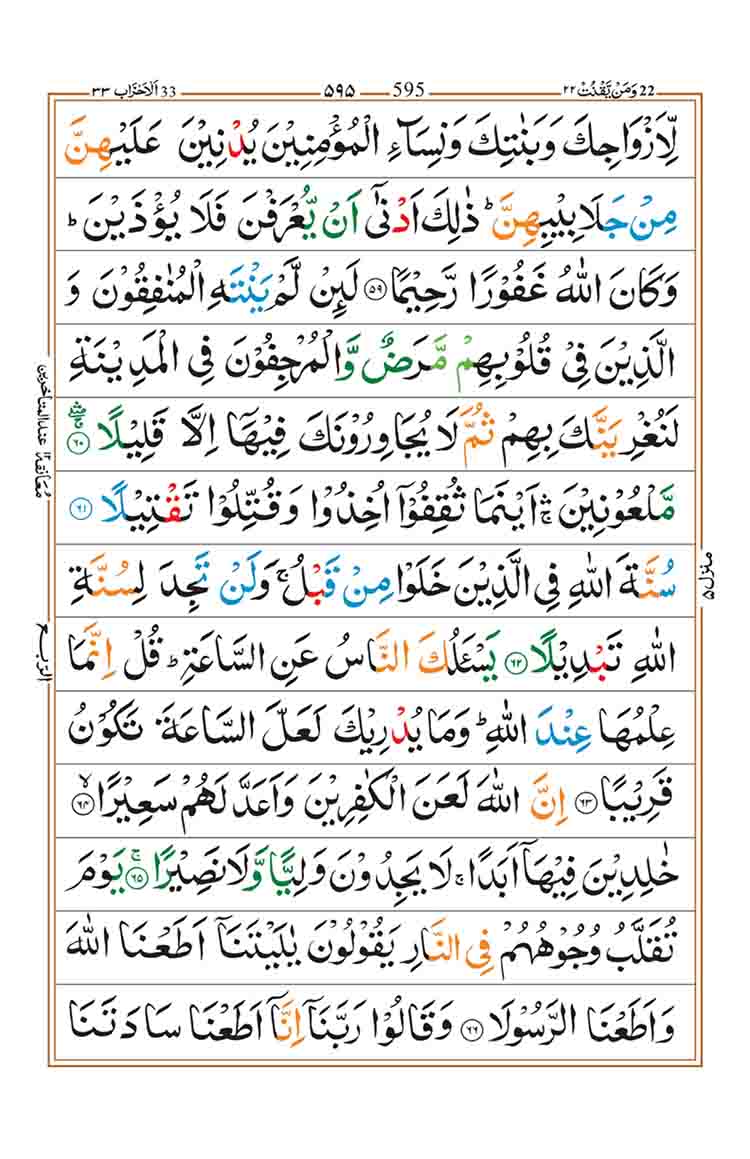 22 وَمَنْ يَّقْنُتْ ۲۲ 595 ۵۹۵ 33 اَلْاَحْزَاب ۳۳
لِّاَزْوَاجِكَ وَبَنٰتِكَ وَنِسَآءِ الْمُؤْمِنِيْنَ يُدْنِيْنَ عَلَيْهِنَّ
مِنْ جَلَابِيْبِهِنَّ ؕ ذٰلِكَ اَدْنٰٓى اَنْ يُّعْرَفْنَ فَلَا يُؤْذَيْنَ ؕ
وَكَانَ اللّٰهُ غَفُوْرًا رَّحِيْمًا ۝۵۹ لَئِنْ لَّمْ يَنْتَهِ الْمُنٰفِقُوْنَ وَ
الَّذِيْنَ فِيْ قُلُوْبِهِمْ مَّرَضٌ وَّالْمُرْجِفُوْنَ فِي الْمَدِيْنَةِ
لَنُغْرِيَنَّكَ بِهِمْ ثُمَّ لَا يُجَاوِرُوْنَكَ فِيْهَآ اِلَّا قَلِيْلًا ۝۶۰
مَّلْعُوْنِيْنَ ۛۚ اَيْنَمَا ثُقِفُوْٓا اُخِذُوْا وَقُتِّلُوْا تَقْتِيْلًا ۝۶۱
سُنَّةَ اللّٰهِ فِي الَّذِيْنَ خَلَوْا مِنْ قَبْلُ ۚ وَلَنْ تَجِدَ لِسُنَّةِ
اللّٰهِ تَبْدِيْلًا ۝۶۲ يَسْـَٔلُكَ النَّاسُ عَنِ السَّاعَةِ ؕ قُلْ اِنَّمَا
عِلْمُهَا عِنْدَ اللّٰهِ ؕ وَمَا يُدْرِيْكَ لَعَلَّ السَّاعَةَ تَكُوْنُ
قَرِيْبًا ۝۶۳ اِنَّ اللّٰهَ لَعَنَ الْكٰفِرِيْنَ وَاَعَدَّ لَهُمْ سَعِيْرًا ۝۶۴ۙ
خٰلِدِيْنَ فِيْهَآ اَبَدًا ۚ لَا يَجِدُوْنَ وَلِيًّا وَّلَا نَصِيْرًا ۝۶۵ۚ يَوْمَ
تُقَلَّبُ وُجُوْهُهُمْ فِي النَّارِ يَقُوْلُوْنَ يٰلَيْتَنَآ اَطَعْنَا اللّٰهَ
وَاَطَعْنَا الرَّسُوْلَا ۝۶۶ وَقَالُوْا رَبَّنَآ اِنَّآ اَطَعْنَا سَادَتَنَا
منزل ۵
معانقة ۱۲ عند المتاخرين
الربع